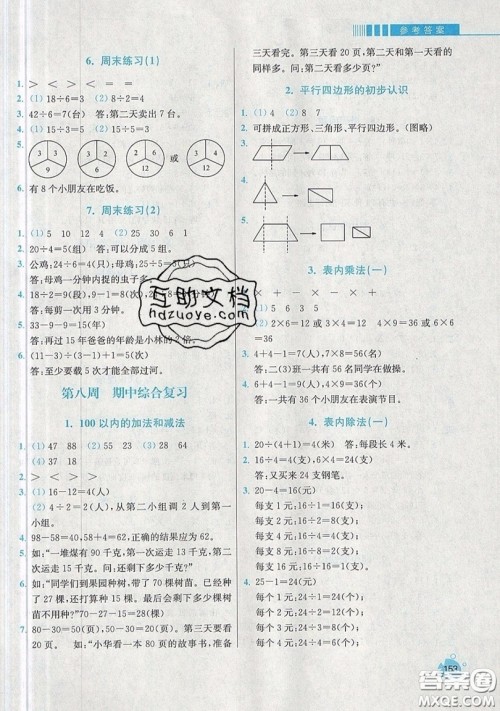 参考答案
6. 周末练习(1)
1. ＞ ＜ ＞ ＜ ＝ ＝
2. (1) 18÷6=3 (2) 8÷2=4
3. 42÷6=7(台) 答:第二天卖出7台。
4. (1) 15÷3=5 (2) 15÷5=3
5.
3 3 9
2 6 6
2 3 12
或
3 2 12
6. 有8个小朋友在吃饭。
7. 周末练习(2)
1. 5 10 12 4 20 30 6 1
2. 20÷4=5(组) 答:可以分成5组。
3. 公鸡:24÷6=4(只);母鸡:25÷5=5(只)
答:母鸡一分钟内捉的虫子多
4. 18÷2=9(段),9-1=8(次),
答:每剪一次用3分钟。
5. 33-9-9=15(年)
答:再过15年爸爸的年龄是小林的2倍。
6. (11-3)÷(3-1)+1=5(次)
答:至少要载5次才能全部过河。
第八周 期中综合复习
1. 100以内的加法和减法
1. (1) 47 88 (2) 55 23 (3) 28 64
(4) 17 38
2. ＞ ＜ ＞ ＞
3. (1) 16-12=4(人)
(2) 4÷2=2(人),从第二小组调2人到第一小组。
4. 98-40=58,58+4=62,正确的结果应为62。
5. 如:“一堆煤有90千克,第一次运走13千克,第二次运走15千克。问:还剩下多少千克?”
6. 如:“同学们到果园种树,带了70棵树苗。已经种了27棵,还打算种15棵。最后会剩下多少棵树苗不用种?”70-27-15=28(棵)
7. 80-30=50(页),50-30=20(页)。第三天要看20页。 如:“小华看一本80页的故事书,准备
三天看完。第三天看20页,第二天和第一天看的同样多。问:第二天看多少页?”
2. 平行四边形的初步认识
1. (1) 4 (2) 8 7
2. 可拼成正方形、三角形、平行四边形。(图略)
3.
4.
5.
3. 表内乘法(一)
× ＋ － × － × ＋
(1) 5 6 3 5
(2) 2×6=12 3×4=12 4×9=36 6×6=36
3. 4+4-1=7(人),7×8=56(名)
答:二(3)班一共有56名同学在做操。
4. 4+6-1=9(人),9×4=36(名)
答:一共有36个小朋友在表演节目。
4. 表内除法(一)
1. 20÷(4+1)=4(米) 答:每段长4米。
2. 4×6=24(支)
答:又买来24支钢笔。
3. 20-4=16(元)
每支1元;16÷1=16(支);
每支2元;16÷2=8(支);
每支4元;16÷4=4(支);
每支8元;16÷8=2(支);
每支16元。16÷16=1(支)。
4. 25-1=24(元)
每个1元;24÷1=24(个);
每个2元;24÷2=12(个);
每个3元;24÷3=8(个);
每个4元;24÷4=6(个);
互助文档
hdzuoye.com
153
答案圈
MXQE.COM